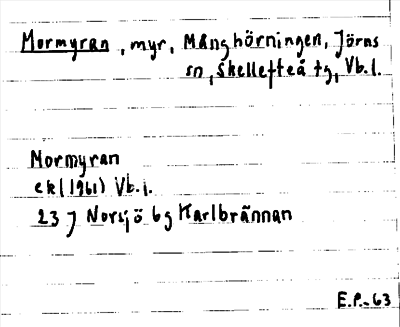 Mormyran, myr, Månghörningen, Jörns
sn, Skellefteå tg, Vb.l.
Mormyran
ek (1961) Vb.l.
23 J Norsjö 6g Karlbrännan
E.P.-63